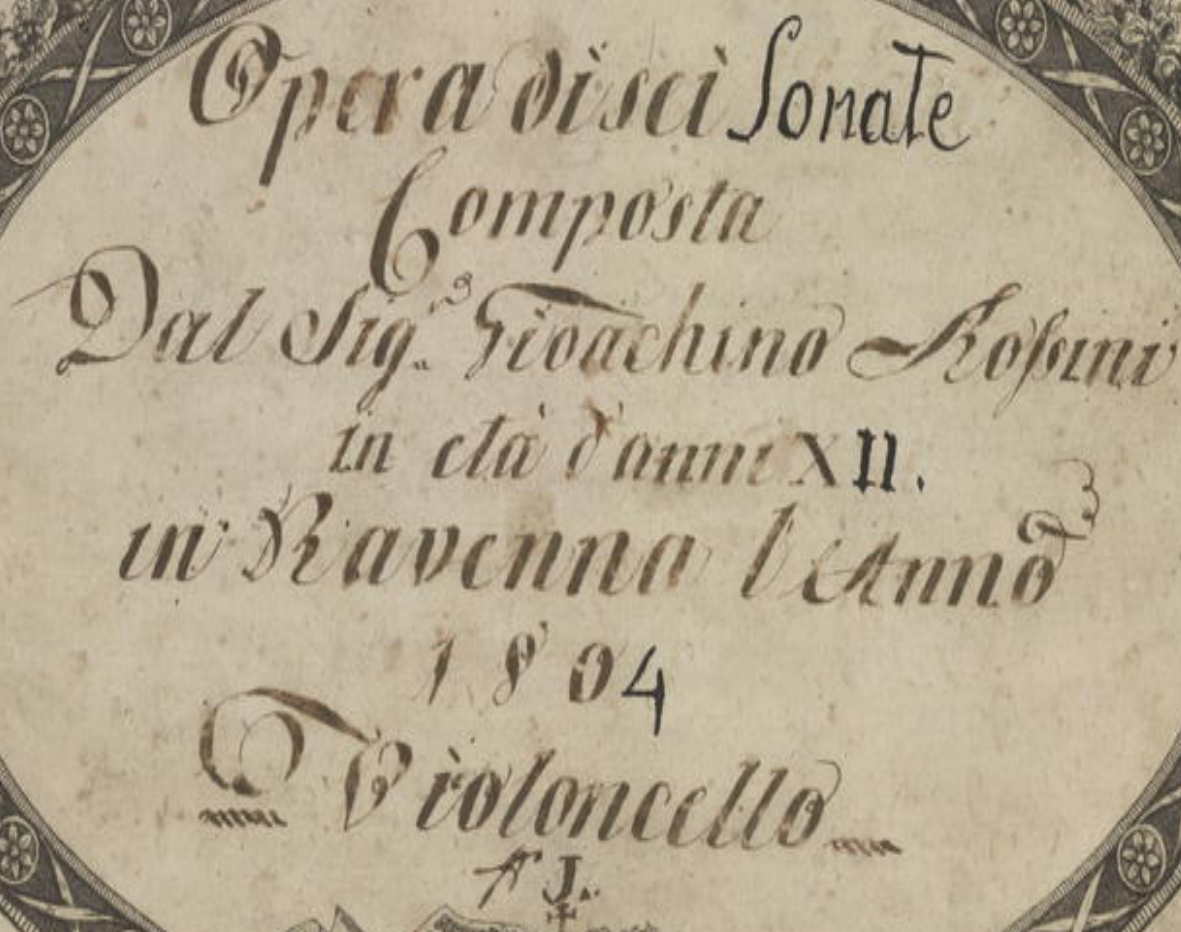 Opera di sei Sonate
Composta
Dal Sig.re Gioachino Rossini
in età d'anni XII.
in Ravenna l'Anno
1804
Violoncello